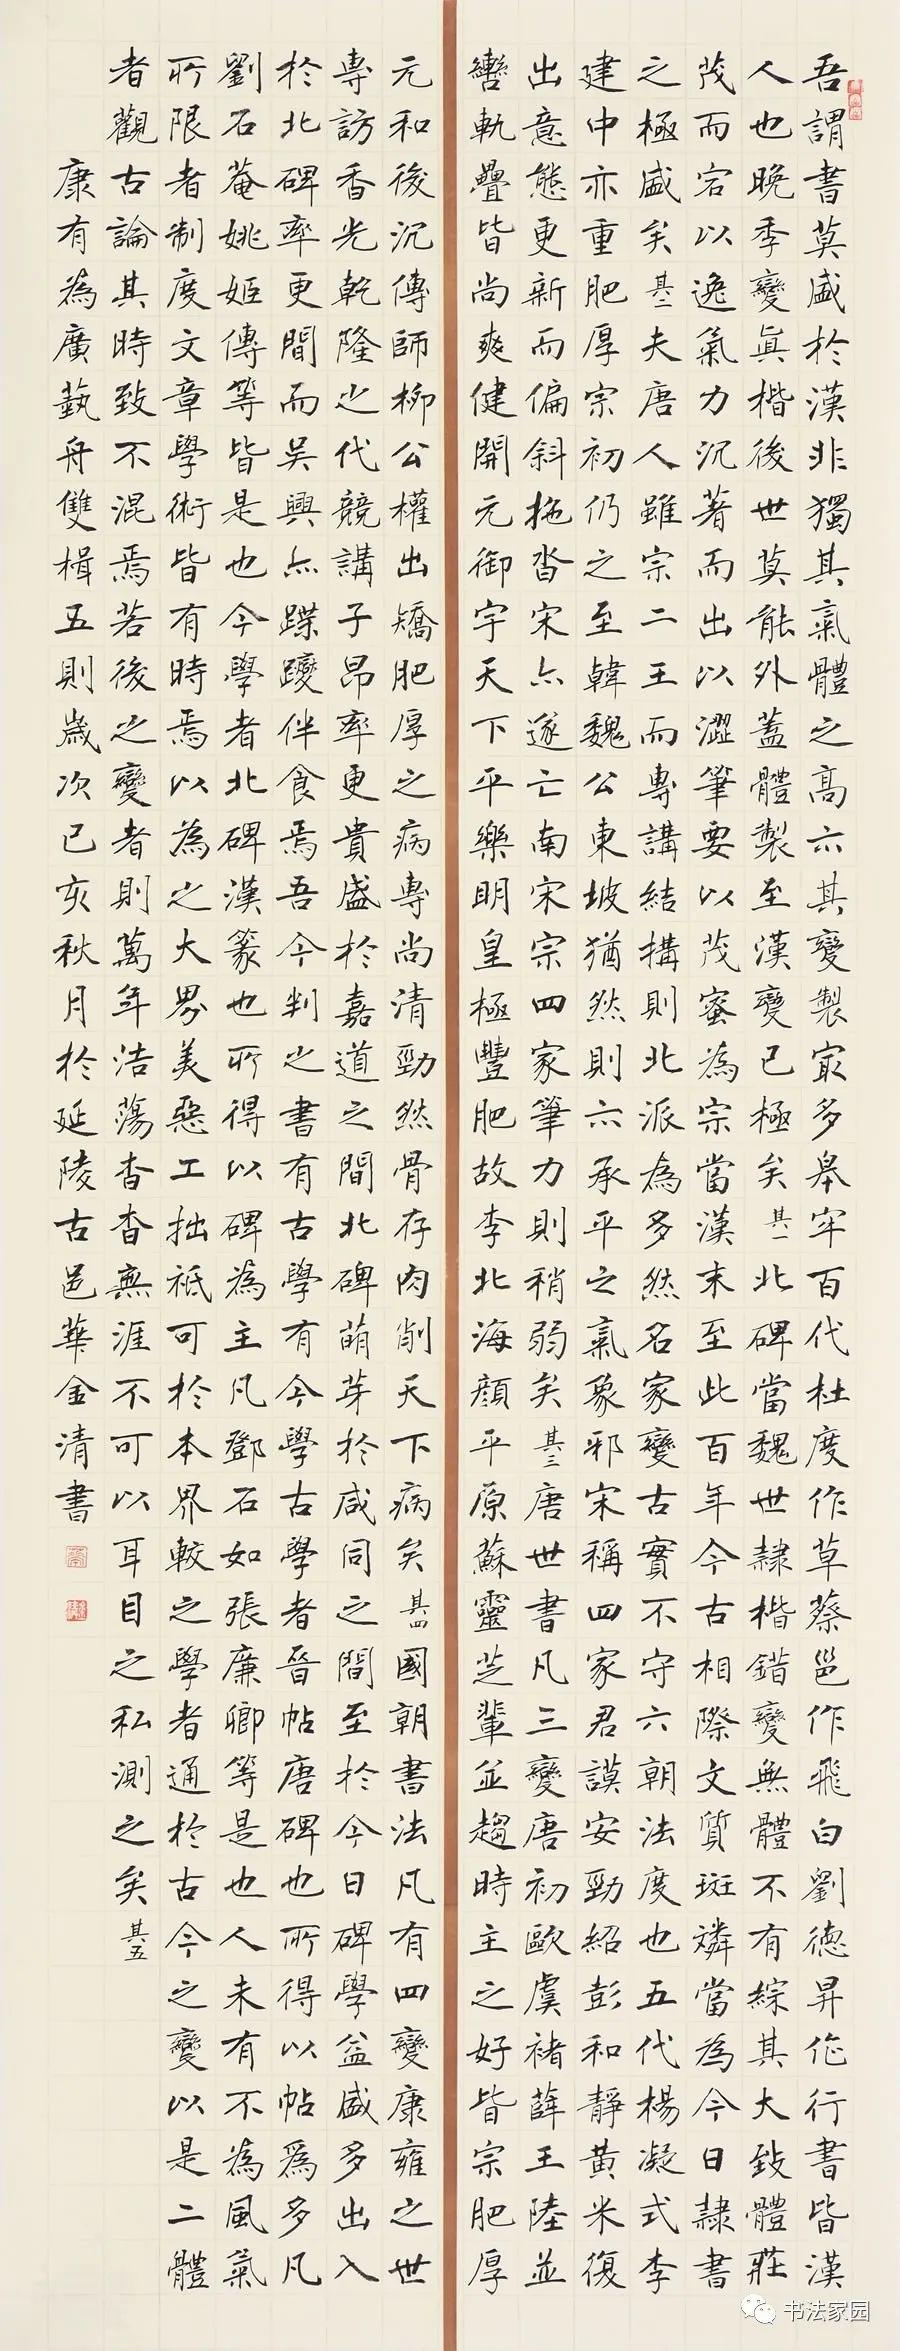 吾謂書莫盛於漢非獨其氣體之高亦其變製寂多皋牢百代杜度作草蔡邕作飛白劉德昇作行書皆漢
人也晚季變真楷後世莫能外蓋體製至漢變已極矣其一北碑當魏世隸楷錯變無體不有綜其大致體莊
茂而宕以逸氣力沉著而出以澀筆要以茂密為宗當漢末至此百年今古相際文質斑璘當為今日隸書
之極盛矣其二夫唐人雖宗二王而專講結搆則北派為多然名家變古實不守六朝法度也五代楊凝式李
建中亦重肥厚宗初仍之至韓魏公東坡猶然則亦承平之氣象邪宋稱四家君謨安勁紹彭和靜黃米復
出意態更新而偏斜拖沓宋亦遂亡南宋宗四家筆力則稍弱矣其三唐世書凡三變唐初歐虞褚薛王陸並
轡軌疊皆尚爽健開元御宇天下平樂明皇極豐肥故李北海顏平原蘇靈芝輩並趨時主之好皆宗肥厚
元和後沉傳師柳公權出矯肥厚之病專尚清勁然骨存肉削天下病矣其四國朝書法凡有四變康雍之世
專訪香光乾隆之代競講子昂率更貴盛於嘉道之間北碑萌芽於咸同之間至於今日碑學益盛多出入
於北碑率更間而吳興亦蹀躞伴食焉吾今判之書有古學有今學古學者晉帖唐碑也所得以帖為多凡
劉石菴姚姬傳等皆是也今學者北碑漢篆也所得以碑為主凡鄧石如張廉卿等是也人未有不為風氣
所限者制度文章學術皆有時焉以為之大界美惡工拙祗可於本界較之學者通於古今之變以是二體
者觀古論其時致不混焉若後之變者則萬年浩蕩杳杳無涯不可以耳目之私測之矣其五
康有為廣藝舟雙楫五則歲次己亥秋月於延陵古邑華金清書
书法家园